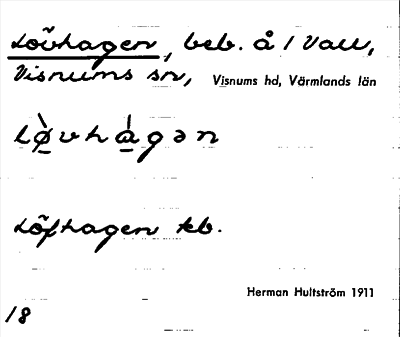 Lövhagen, beb. å 1 Vall,
Visnums sn, Visnums hd, Värmlands län
Lø̀vhàgən
Löfhagen kb.
Herman Hultström 1911
18